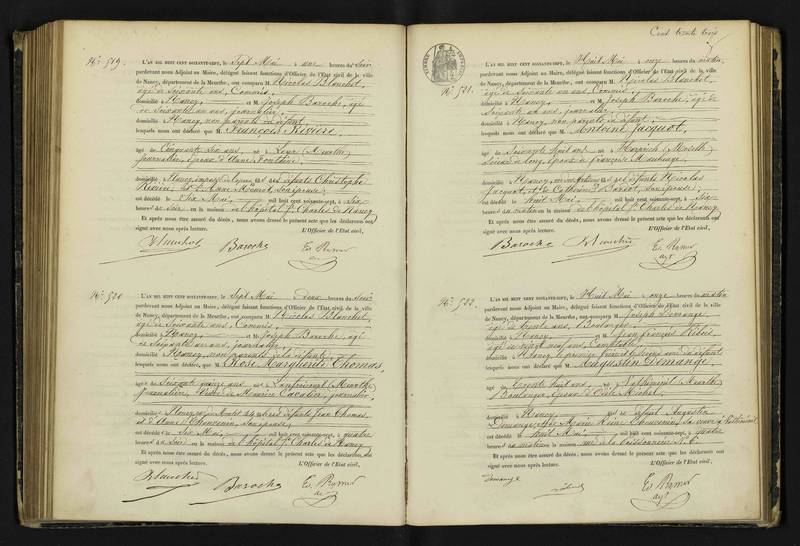 No. 519.
L'AN MIL HUIT CENT SOIXANTE-SEPT, le Sept Mai à onze heures du Soir
pardevant nous Adjoint au Maire, délégué faisant fonctions d'Officier de l'État civil de la ville
de Nancy, département de la Meurthe, ont comparu M. Nicolas Blanchot,
âgé de Soixante ans, Commis,
domicilié à Nancy, et M. Joseph Baroche, âgé
de Soixante un ans, journalier,
domicilié à Nancy, non parents du défunt,
lesquels nous ont déclaré que M. François Rivière,
âgé de Cinquante six ans, né à (Meurthe)
journalier, époux d'Anne
domicilié à Nancy, défunts Christophe
Rivière, et d'Anne son épouse,
est décédé le Six Mai, mil huit cent soixante-sept, à Six
heures du Soir en la maison de l'hôpital St. Charles de Nancy
Et après nous être assuré du décès, nous avons dressé le présent acte que les déclarants ont
signé avec nous après lecture. L'Officier de l'État civil,
Blanchot Baroche
No. 520
L'AN MIL HUIT CENT SOIXANTE-SEPT, le Sept Mai à heures du Soir
pardevant nous Adjoint au Maire, délégué faisant fonctions d'Officier de l'État civil de la ville
de Nancy, département de la Meurthe, ont comparu M. Nicolas Blanchot,
âgé de Soixante ans, Commis,
domicilié à Nancy, et M. Joseph Baroche, âgé
de Soixante un ans, journalier,
domicilié à Nancy, non parents de la défunte,
lesquels nous ont déclaré, que M. Rose Marguerite Thomas,
âgée de Soixante quinze ans, née à (Meurthe)
journalière, Veuve de Maurice Cavalier, journalier,
domiciliée à Nancy, défunts Jean Thomas
et d'Anne son épouse,
est décédée le Six Mai, mil huit cent soixante-sept, à quatre
heures du Soir en la maison de l'hôpital St. Charles de Nancy
Et après nous être assuré du décès, nous avons dressé le présent acte que les déclarants ont
signé avec nous après lecture. L'Officier de l'État civil,
Blanchot Baroche
Cent trente trois
No. 521.
L'AN MIL HUIT CENT SOIXANTE-SEPT, le Huit Mai à onze heures du matin
pardevant nous Adjoint au Maire, délégué faisant fonctions d'Officier de l'État civil de la ville
de Nancy, département de la Meurthe, ont comparu M. Nicolas Blanchot,
âgé de Soixante ans, Commis,
domicilié à Nancy, et M. Joseph Baroche, âgé de
Soixante un ans, journalier,
domicilié à Nancy, non parents du défunt,
lesquels nous ont déclaré que M. Antoine Jacquot,
âgé de Soixante huit ans, né à (Moselle)
époux de Françoise
domicilié à Nancy, défunts Nicolas
Jacquot, et de Catherine son épouse,
est décédé le huit Mai, mil huit cent soixante-sept, à Six
heures du matin en la maison de l'hôpital St. Charles de Nancy
Et après nous être assuré du décès, nous avons dressé le présent acte que les déclarants ont
signé avec nous après lecture. L'Officier de l'État civil,
Baroche Blanchot
No. 522.
L'AN MIL HUIT CENT SOIXANTE-SEPT, le Huit Mai à onze heures du matin
pardevant nous Adjoint au Maire, délégué faisant fonctions d'Officier de l'État civil de la ville
de Nancy, département de la Meurthe, ont comparu M. Joseph Demange,
âgé de trente ans, Boulanger,
domicilié à Nancy, et M. Jean François
âgé de vingt neuf ans, Comptable,
domicilié à Nancy, le premier frère et le second ami du défunt
lesquels nous ont déclaré que M. Augustin Demange,
âgé de trente huit ans, né à (Meurthe)
Boulanger, époux d' Michel,
domicilié à Nancy, fils de défunt Augustin
Demange, et de Marie sa veuve
est décédé le huit Mai, mil huit cent soixante-sept, à quatre
heures du matin en la maison rue de la Poissonnerie No. 6
Et après nous être assuré du décès, nous avons dressé le présent acte que les déclarants ont
signé avec nous après lecture. L'Officier de l'État civil,
Demange